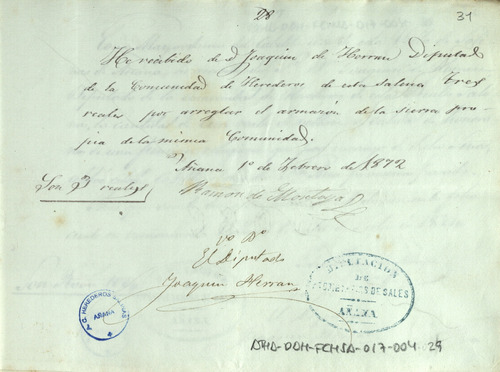 28
31
He recibido de D Joaquin de Herran Diputado
de la Comunidad de Herederos de esta salena tres
reales por arreglar el armazon de la sierra pro
pia de la misma Comunidad.
Añana 1º de Febrero de 1872
Son 3 reales
Ramon de Montoya
Vº Bº
El Diputado
Joaquin Herran
DIPUTACION
DE
PROPIETARIOS DE SALES
AÑANA
HEREDEROS
AÑANA
ATHA-DAH-FCHSA-017-004-29